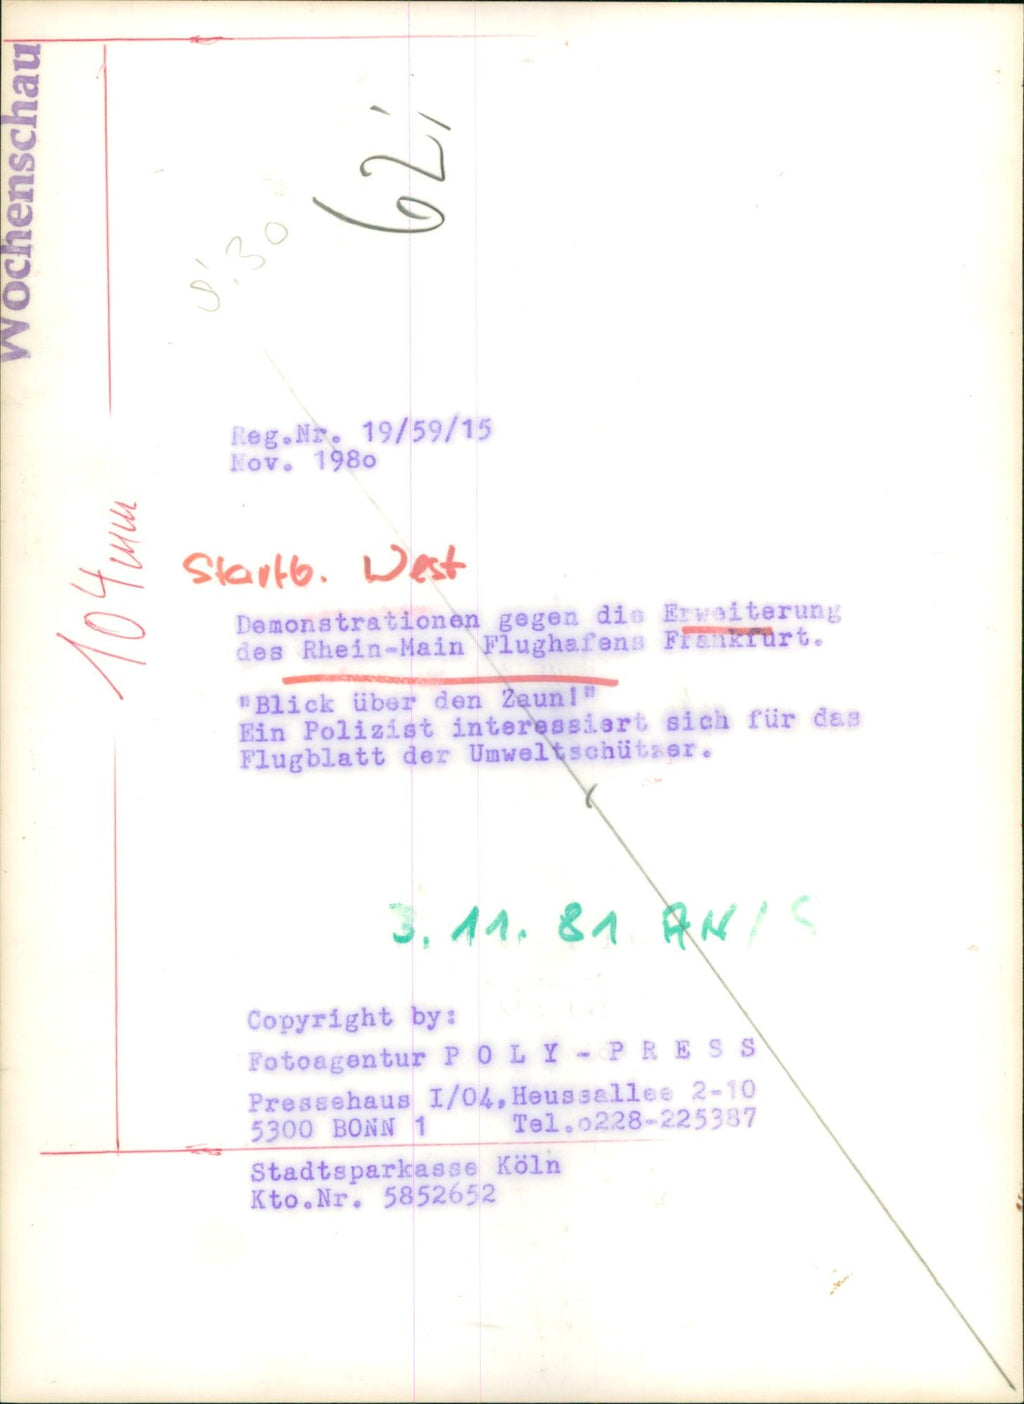 Wochenschau
62
8.30
Reg.Nr. 19/59/15
Nov. 198o
104mm
Startb. West
Demonstrationen gegen die Erweiterung
des Rhein-Main Flughafens Frankfurt.
"Blick über den Zaun!"
Ein Polizist interessiert sich für das
Flugblatt der Umweltschützer.
3.11.81 AN/S
Copyright by:
Fotoagentur P O L Y - P R E S S
Pressehaus I/04,Heussallee 2-10
5300 BONN 1 Tel.o228-225387
Stadtsparkasse Köln
Kto.Nr. 5852652